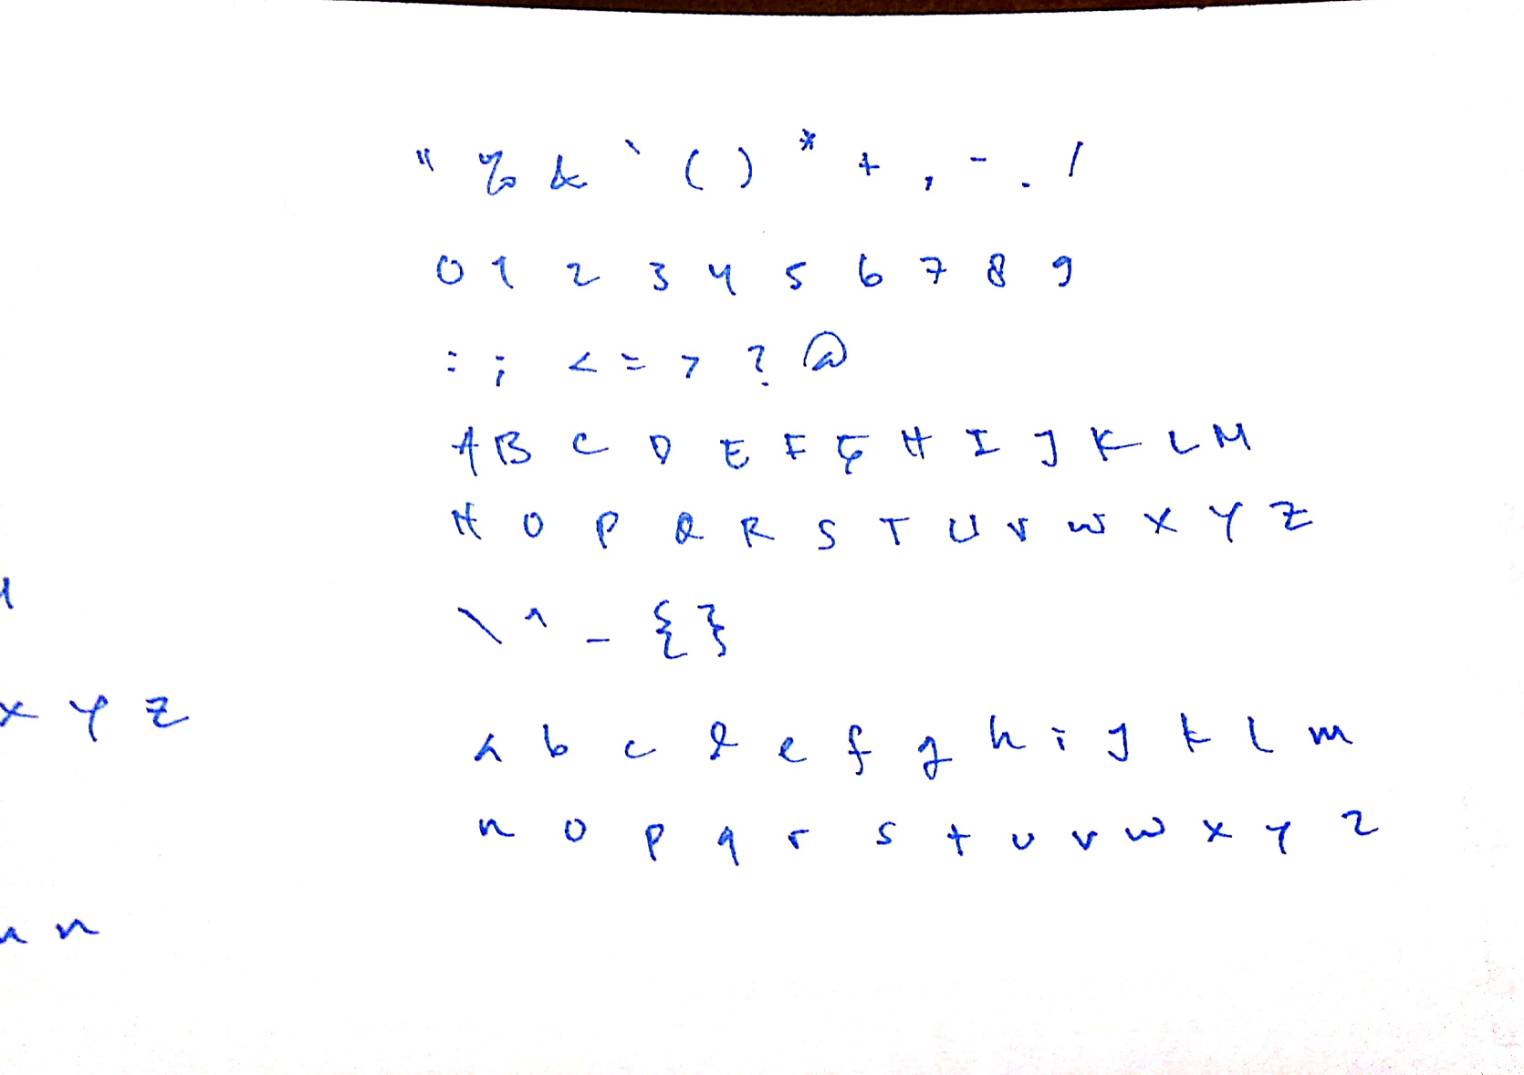 " % & ` ( ) * + , - . /
0 1 2 3 4 5 6 7 8 9
: ; < = > ? @
A B C D E F G H I J K L M
N O P Q R S T U V W X Y Z
\ ^ _ { }
x y z
a b c d e f g h i j k l m
n o p q r s t u v w x y z
n